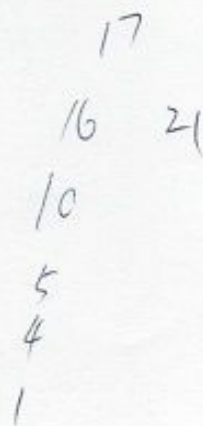 17
16 21
10
5
4
1